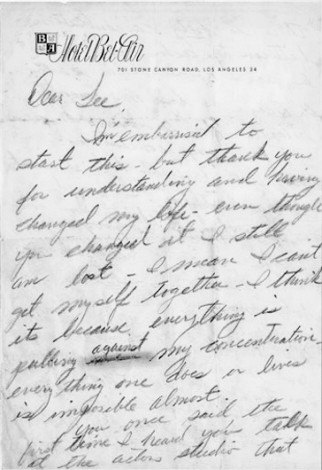 B A Hotel Bel-Air
701 STONE CANYON ROAD, LOS ANGELES 24
Dear Lee,
I'm embarrised to
start this - but thank you
for understanding and having
changed my life - even though
you changed it I still
am lost - I mean I can't
get myself together - I think
its because everything is
pulling against my concentration
everything one does or lives
is imposible almost.
You once said, the
first time I heard you talk
at the actors studio that